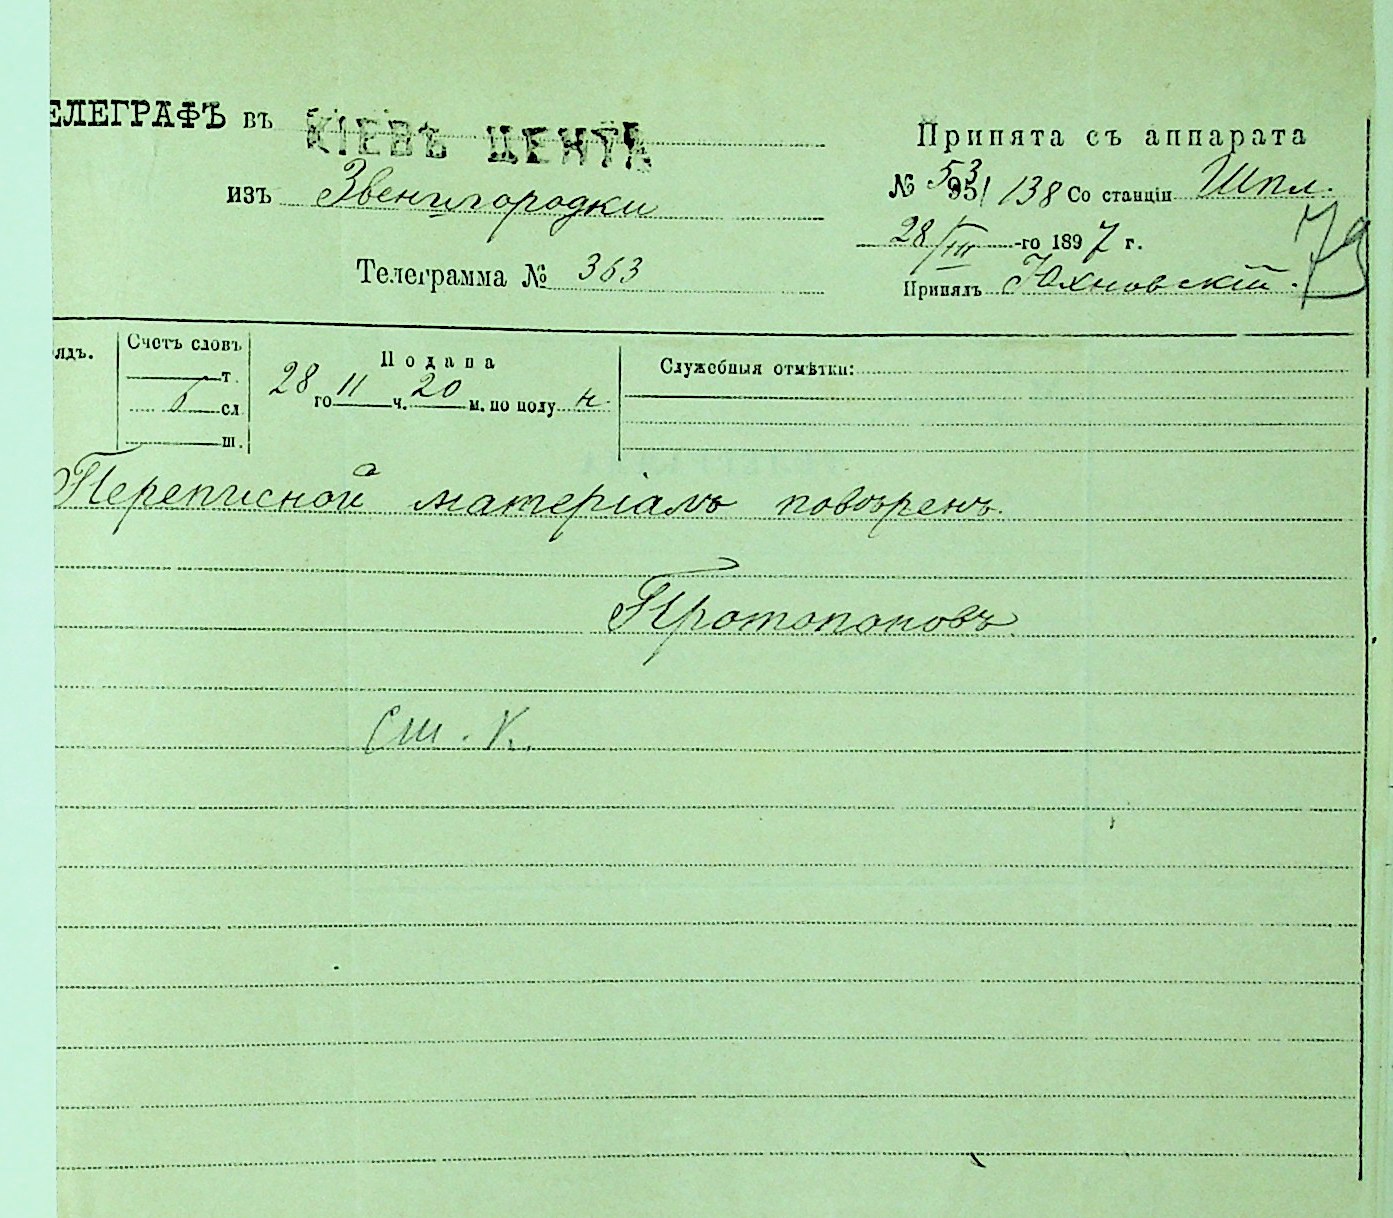 ЕЛЕГРАФЪ въ КІЕВЪ ЦЕНТР
Принята съ аппарата
изъ Звенигородки
№ 53 138 Со станціи Шпл.
28/III -го 1897 г.
79
Телеграмма № 363
Принялъ Юхновскій.
ядъ.
Счетъ словъ
т.
сл
ш.
Подана
28 го 11 ч. 20 м. по полу н.
Служебныя отмѣтки:
Переписной матеріалъ повѣренъ.
Протопоповъ.